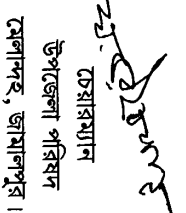 চেয়ারম্যান
উপজেলা পরিষদ
মেলান্দহ, জামালপুর।